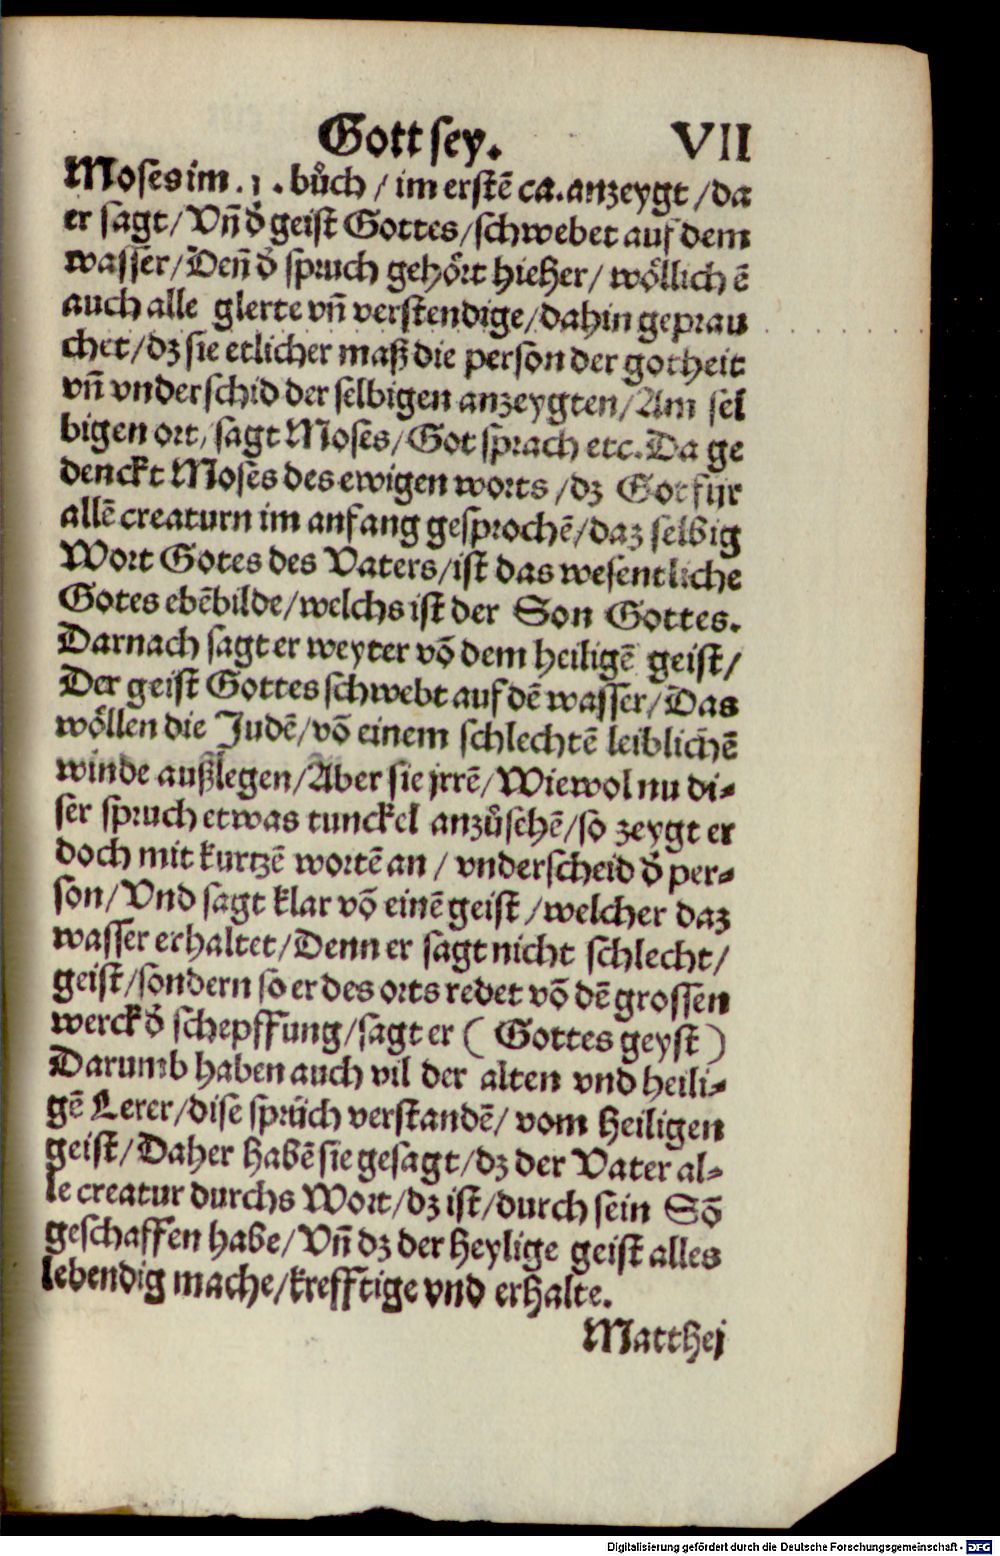 Gott sey. VII
Moses im .1. bůch / im erstẽ ca. anzeygt / da
er sagt / Vñ d̕ geist Gottes / schwebet auf dem
wasser / Deñ d̕ spruch gehört hieher / wöllich ẽ
auch alle glerte vñ verstendige / dahin geprau
chet / dz sie etlicher maß die person der gotheit
vñ vnderschid der selbigen anzeygten / Am sel
bigen ort / sagt Moses / Got sprach etc. Da ge
denckt Moses des ewigen worts / dz Got für
allẽ creaturn im anfang gesprochẽ / daz selbig
Wort Gotes des Vaters / ist das wesentliche
Gotes ebẽbilde / welchs ist der Son Gottes.
Darnach sagt er weyter võ dem heiligẽ geist /
Der geist Gottes schwebt auf dẽ wasser / Das
wöllen die Judẽ / võ einem schlechtẽ leiblichẽ
winde außlegen / Aber sie jrrẽ / Wiewol nu di⸗
ser spruch etwas tunckel anzůsehẽ / so zeygt er
doch mit kurtzẽ wortẽ an / vnderscheid d̕ per⸗
son / Vnd sagt klar võ einẽ geist / welcher daz
wasser erhaltet / Denn er sagt nicht schlecht /
geist / sondern so er des orts redet võ dẽ grossen
werck d̕ schepffung / sagt er ( Gottes geyst )
Darumb haben auch vil der alten vnd heili⸗
gẽ Lerer / dise sprüch verstandẽ / vom Heiligen
geist / Daher habẽ sie gesagt / dz der Vater al⸗
le creatur durchs Wort / dz ist / durch sein Sõ
geschaffen habe / Vñ dz der Heylige geist alles
lebendig mache / krefftige vnd erhalte.
Matthej
Digitalisierung gefördert durch die Deutsche Forschungsgemeinschaft - DFG